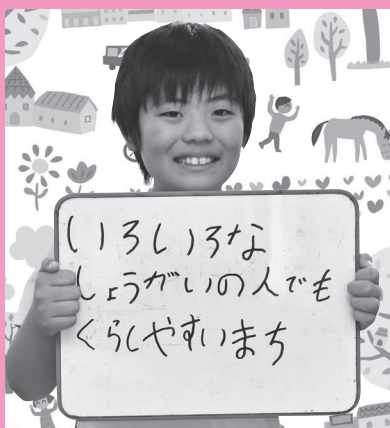 いろいろな
しょうがいの人でも
くらしやすいまち